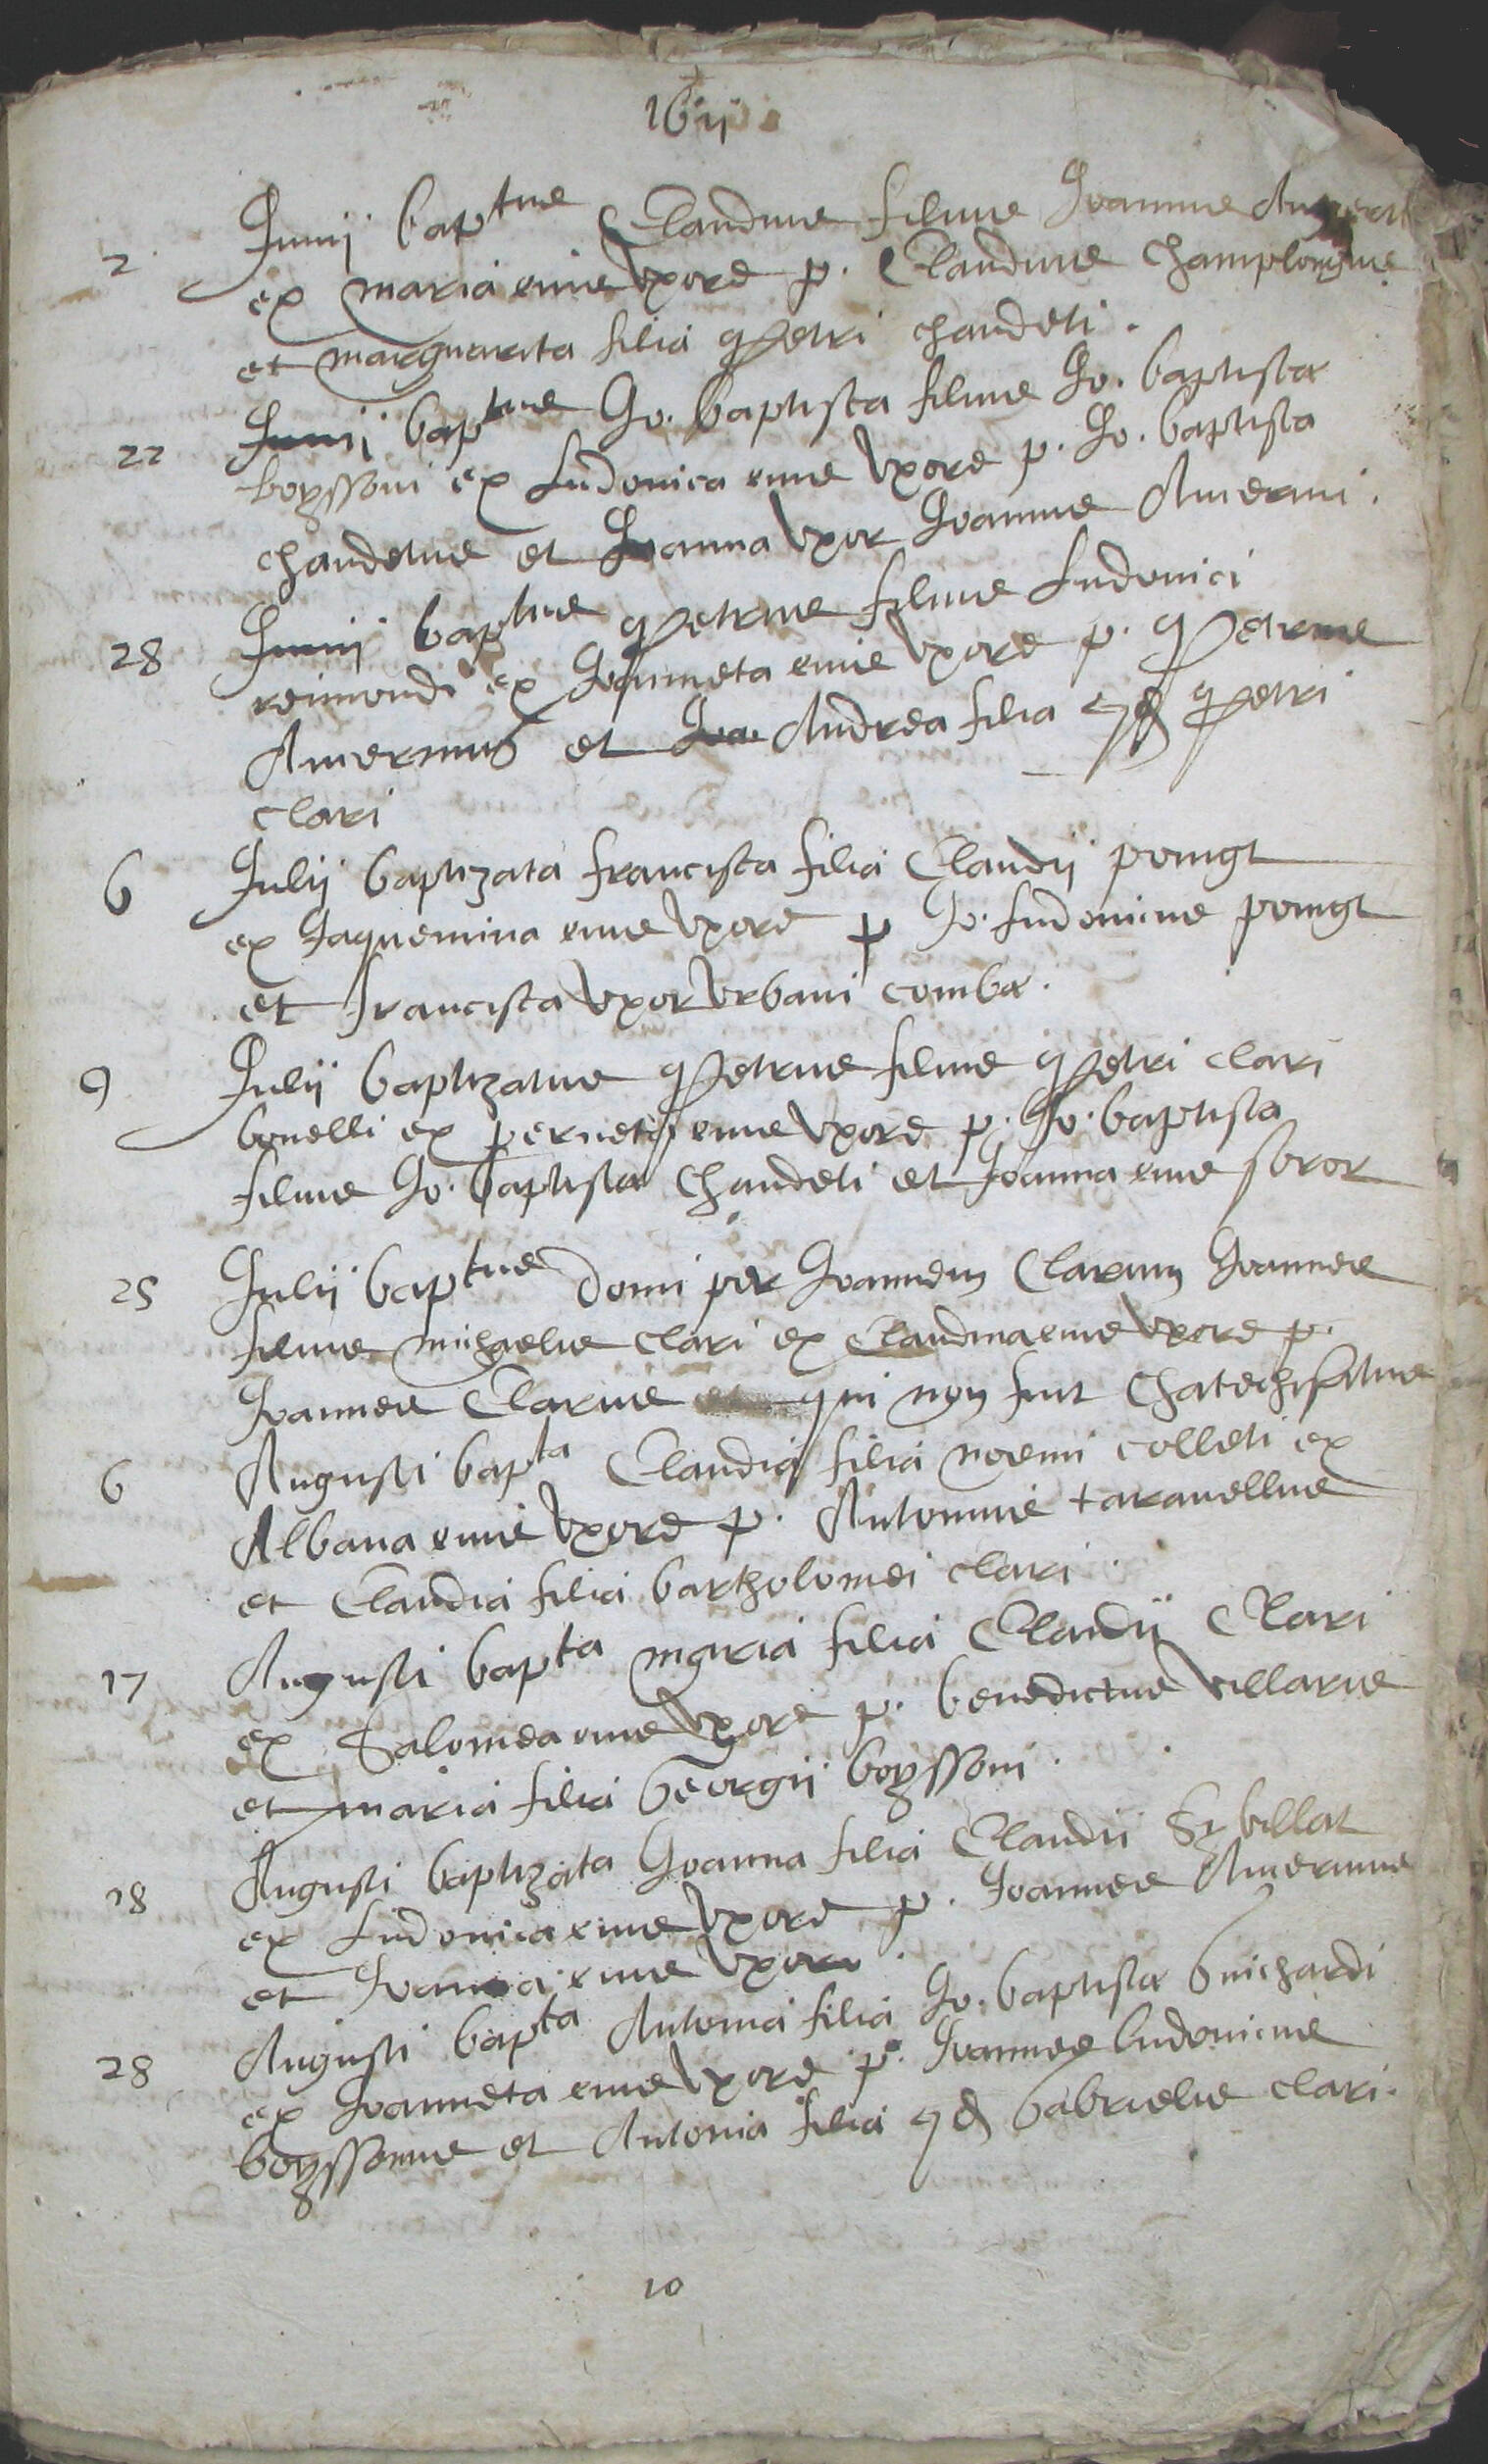 1611
2 Junii bap^tus Claudius filius Joannis
ex maria eius Uxore p. Claudius Champlongius
et marguarita filia Petri chaudeti.
22 Junii bap^tus Jo. baptista filius Jo. baptistæ
boyssoni ex Ludovica eius Uxore p. Jo. baptista
chaudetus et Joanna Uxor Joannis Amerani.
28 Junii bap^tus Petrus filius Ludovici
reimondi ex Joanneta eius Uxore p. Petrus
Amermus et Andrea filia qd Petri
clari
6 Julii baptizata francisca filia Claudii poingt
ex Jaquemina eius Uxore p Jo. Ludovicus poingt
et francisca Uxor Urbani combæ.
9 Julii baptizatus Petrus filius Petri clari
bonelli ex perneta eius Uxore p. Jo. baptista
filius Jo. baptistæ Chaudeti et Joanna eius soror
25 Julii bap^tus domi per Joannem Clarum Joannes
filius michaelis clari ex Claudina eius Uxore p.
Joannes Clarus qui non fuit Chatechisatus
6 Augusti bap^ta Claudia filia noemi colleti ex
Albana eius Uxore p. Antonius taravellus
et Claudia filia bartholomei clari.
17 Augusti bap^ta maria filia Claudii Clari
ex Salomea eius Uxore p. benedictus Villaris
et maria filia Georgii boyssoni.
18 Augusti baptizata Joanna filia Claudii Sybillat
ex Ludovica eius Uxore p. Joannes Ameranus
et Joanna eius Uxor.
28 Augusti bap^ta Antonia filia Jo. baptistæ Guichardi
ex Joanneta eius Uxore p. Joannes ludovicus
boyssonus et Antonia filia qd Gabrielis clari.
10